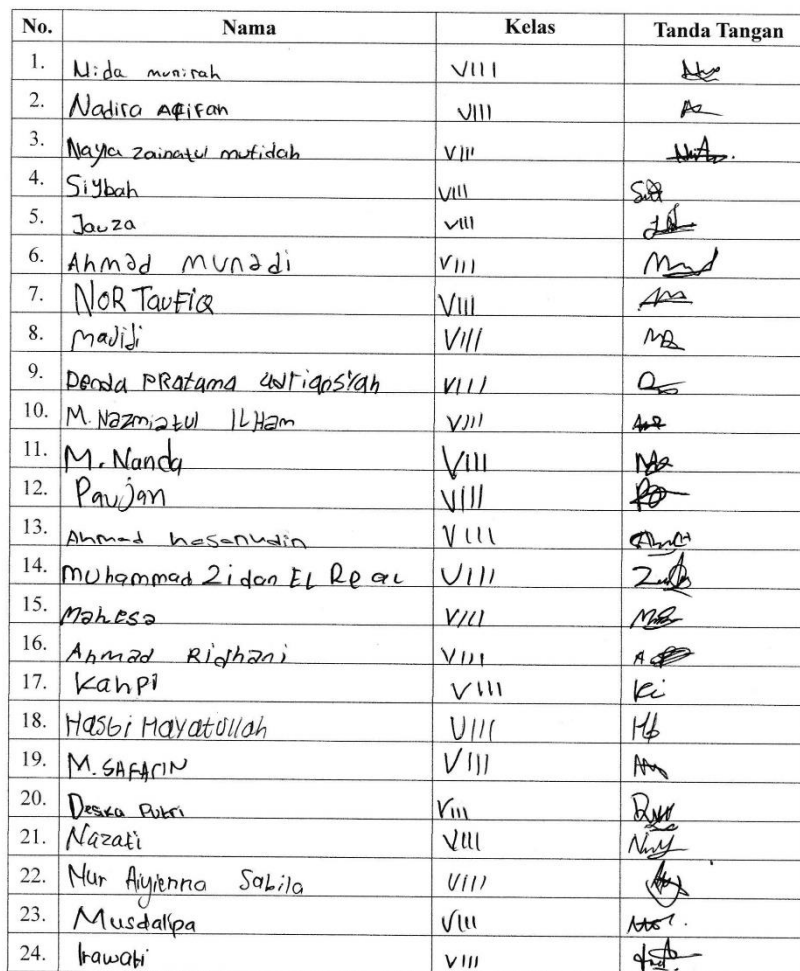 No. Nama Kelas Tanda Tangan
1. Nida munirah VIII
2. Nadira Afifah VIII
3. Nayla zainatul mufidah VIII
4. Siybah VIII
5. Jauza VIII
6. Ahmad Munadi VIII
7. NOR TauFiQ VIII
8. Madjidi VIII
9. Denda PRatama VIII
10. M. Nazmiatul ILHam VIII
11. M. Nanda VIII
12. Paujan VIII
13. Ahmad hasanudin VIII
14. Muhammad Zidan EL Real VIII
15. Mahesa VIII
16. Ahmad Ridhani VIII
17. Kahpi VIII
18. Hasbi Hayatullah VIII
19. M. SAFARIN VIII
20. Desika Putri VIII
21. Nazati VIII
22. Nur Aiyienna Sabila VIII
23. Musdalipa VIII
24. Irawati VIII